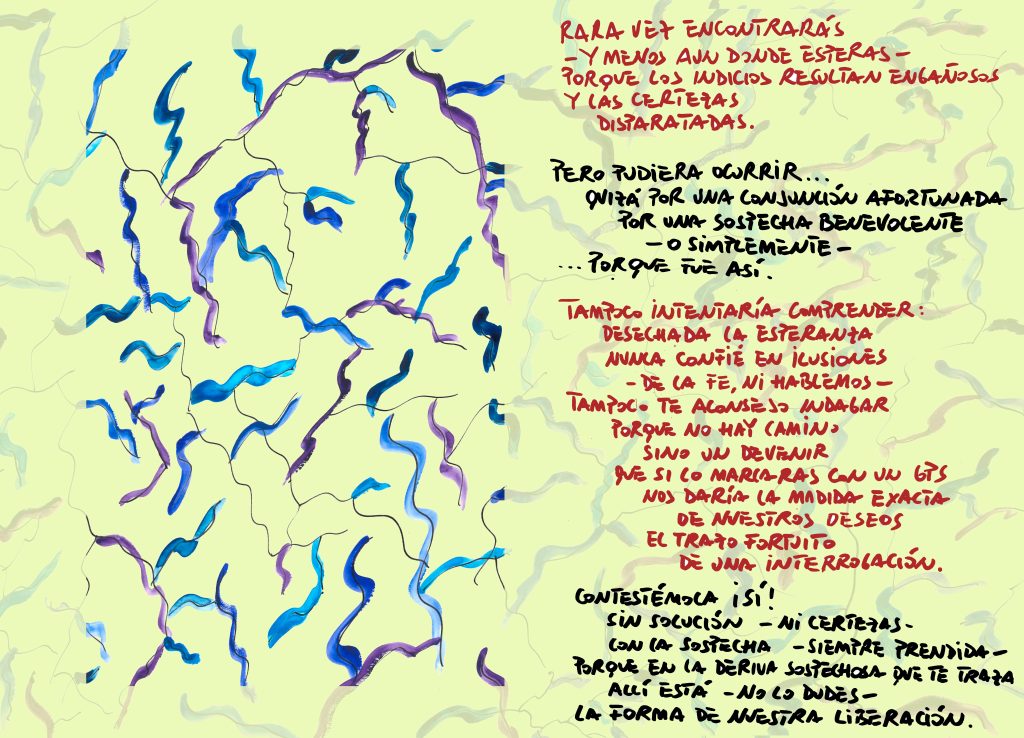 RARA VEZ ENCONTRARÁS
– Y MENOS AUN DONDE ESPERAS –
PORQUE LOS INDICIOS RESULTAN ENGAÑOSOS
Y LAS CERTEZAS
DISPARATADAS.
PERO PUDIERA OCURRIR...
QUIZÁ POR UNA CONJUNCIÓN AFORTUNADA
POR UNA SOSPECHA BENEVOLENTE
– O SIMPLEMENTE –
...PORQUE FUE ASÍ.
TAMPOCO INTENTARÍA COMPRENDER:
DESECHADA LA ESPERANZA
NUNCA CONFIÉ EN ILUSIONES
– DE LA FE, NI HABLEMOS –
TAMPOCO TE ACONSEJO INDAGAR
PORQUE NO HAY CAMINO
SINO UN DEVENIR
QUE SI LO MARCARAS CON UN GPS
NOS DARÍA LA MEDIDA EXACTA
DE NUESTROS DESEOS
EL TRAZO FORTUITO
DE UNA INTERROGACIÓN.
CONTESTÉMOSLA ¡SÍ!
SIN SOLUCIÓN – NI CERTEZAS –
CON LA SOSPECHA – SIEMPRE PRENDIDA –
PORQUE EN LA DERIVA SOSPECHOSA QUE TE TRAZA
ALLÍ ESTÁ – NO LO DUDES –
LA FORMA DE NUESTRA LIBERACIÓN.